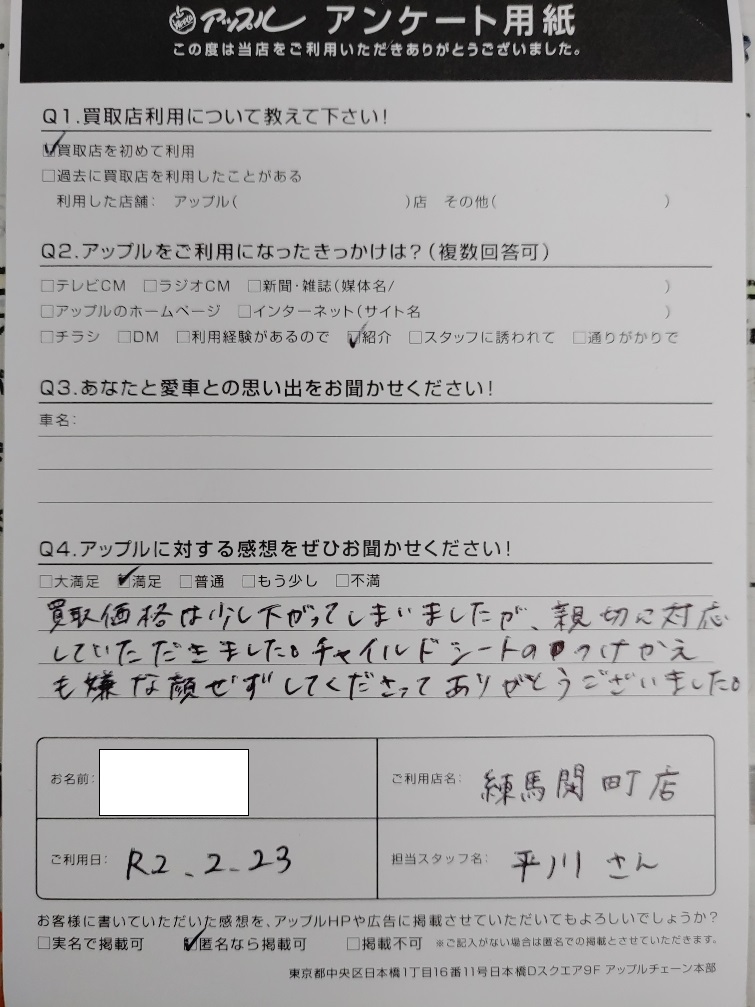 アップル アンケート用紙
この度は当店をご利用いただきありがとうございました。
Q1.買取店利用について教えて下さい!
☑買取店を初めて利用
□過去に買取店を利用したことがある
利用した店舗: アップル( )店 その他( )
Q2.アップルをご利用になったきっかけは?(複数回答可)
□テレビCM □ラジオCM □新聞・雑誌(媒体名/ )
□アップルのホームページ □インターネット(サイト名 )
□チラシ □DM □利用経験があるので ☑紹介 □スタッフに誘われて □通りがかりで
Q3.あなたと愛車との思い出をお聞かせください!
車名:
Q4.アップルに対する感想をぜひお聞かせください!
□大満足 ☑満足 □普通 □もう少し □不満
買取価格は少し下がってしまいましたが、親切に対応
していただきました。チャイルドシートのつけかえ
も嫌な顔せずしてくださってありがとうございました。
お名前: ご利用店名: 練馬関町店
ご利用日: R2.2.23 担当スタッフ名: 平川さん
お客様に書いていただいた感想を、アップルHPや広告に掲載させていただいてもよろしいでしょうか?
□実名で掲載可 ☑匿名なら掲載可 □掲載不可 ※ご記入がない場合は匿名での掲載とさせていただきます。
東京都中央区日本橋1丁目16番11号日本橋Dスクエア9F アップルチェーン本部